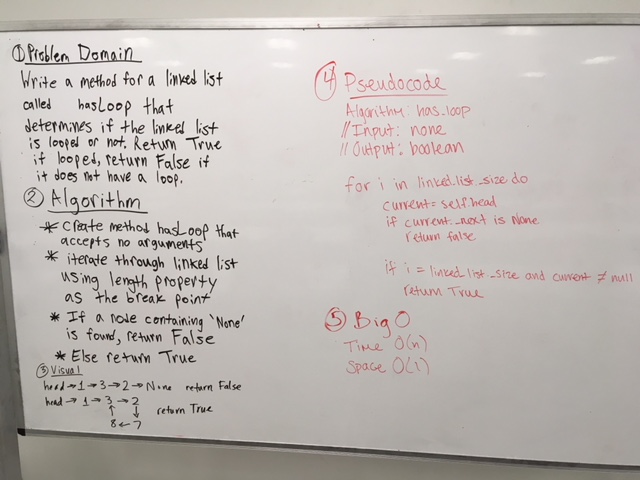 ① Problem Domain
Write a method for a linked list
called hasLoop that
determines if the linked list
is looped or not. Return True
if looped, return False if
it does not have a loop.
② Algorithm
* Create method hasLoop that
accepts no arguments
* iterate through linked list
using length property
as the break point
* If a node containing 'None'
is found, return False
* Else return True
③ Visual
head → 1 → 3 → 2 → None return False
head → 1 → 3 → 2
↑ ↓ return True
8 ← 7
④ Pseudocode
Algorithm: has_loop
// Input: none
// Output: boolean
for i in linked_list._size do
current = self.head
if current._next is None
return false
if i = linked_list._size and current ≠ null
return True
⑤ Big O
Time O(n)
Space O(1)